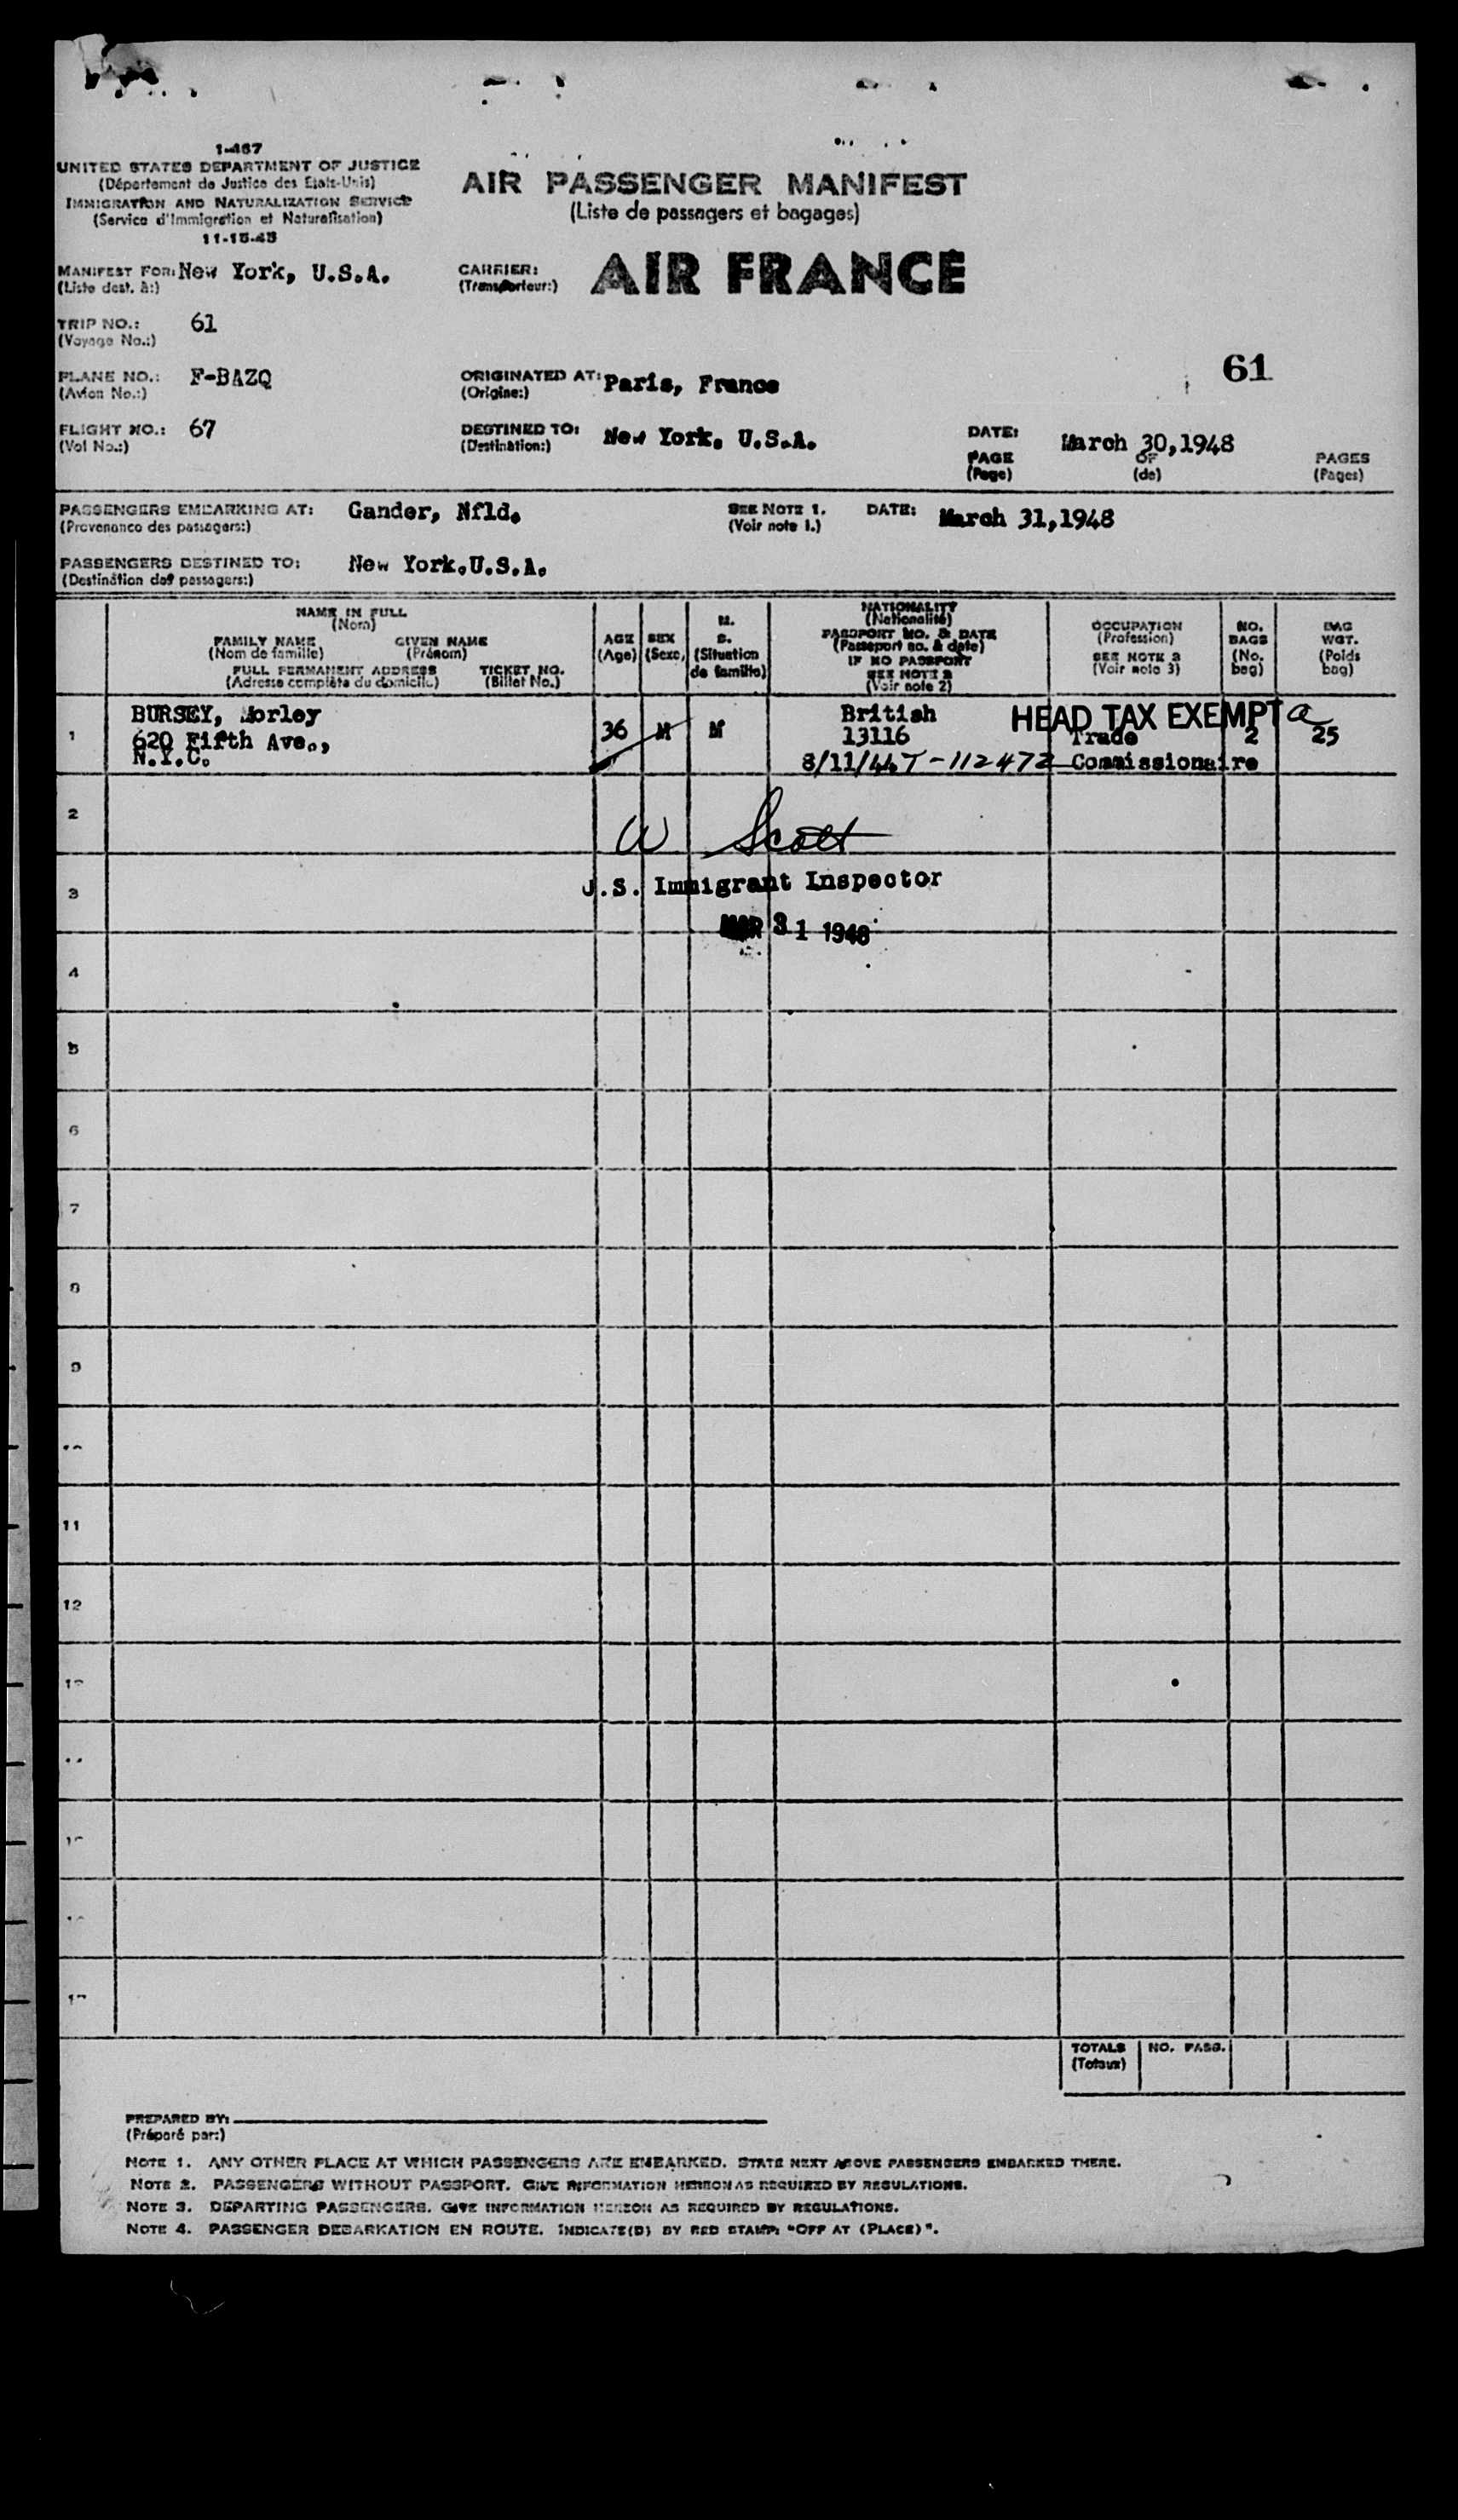 1-467
UNITED STATES DEPARTMENT OF JUSTICE
(Département de Justice des Etats-Unis)
IMMIGRATION AND NATURALIZATION SERVICE
(Service d'Immigration et Naturalisation)
11-15-45
AIR PASSENGER MANIFEST
(Liste de passagers et bagages)
MANIFEST FOR: New York, U.S.A.
(Liste dest. à:)
CARRIER: AIR FRANCE
(Transporteur:)
TRIP NO.: 61
(Voyage No.:)
61
PLANE NO.: F-BAZQ
(Avion No.:)
ORIGINATED AT: Paris, France
(Origine:)
FLIGHT NO.: 67
(Vol No.:)
DESTINED TO: New York, U.S.A.
(Destination:)
DATE: March 30,1948
PAGE OF PAGES
(Page) (de) (Pages)
PASSENGERS EMBARKING AT: Gander, Nfld.
(Provenance des passagers:)
SEE NOTE 1.
(Voir note 1.)
DATE: March 31,1948
PASSENGERS DESTINED TO: New York.U.S.A.
(Destination des passagers:)
NAME IN FULL
(Nom)
FAMILY NAME GIVEN NAME
(Nom de famille) (Prénom)
FULL PERMANENT ADDRESS TICKET NO.
(Adresse complète du domicile) (Billet No.)
AGE
(Age)
SEX
(Sexe)
M.
S.
(Situation
de famille)
NATIONALITY
(Nationalité)
PASSPORT NO. & DATE
(Passeport no. & date)
IF NO PASSPORT
SEE NOTE 2
(Voir note 2)
OCCUPATION
(Profession)
SEE NOTE 3
(Voir note 3)
NO.
BAGS
(No.
bag)
BAG
WGT.
(Poids
bag)
1
BURSEY, Morley
620 Fifth Ave.,
N.Y.C.
36 M M
British
13116
8/11/44 T-112472
HEAD TAX EXEMPT a
Trade
Commissionaire
2 25
2
W Scott
3
U.S. Immigrant Inspector
MAR 31 1948
4
5
6
7
8
9
11
12
TOTALS NO. PASS.
(Totaux)
PREPARED BY:
(Préparé par:)
NOTE 1. ANY OTHER PLACE AT WHICH PASSENGERS ARE EMBARKED. STATE NEXT ABOVE PASSENGERS EMBARKED THERE.
NOTE 2. PASSENGERS WITHOUT PASSPORT. GIVE INFORMATION HEREON AS REQUIRED BY REGULATIONS.
NOTE 3. DEPARTING PASSENGERS. GIVE INFORMATION HEREON AS REQUIRED BY REGULATIONS.
NOTE 4. PASSENGER DEBARKATION EN ROUTE. INDICATE(D) BY RED STAMP: "OFF AT (PLACE)".